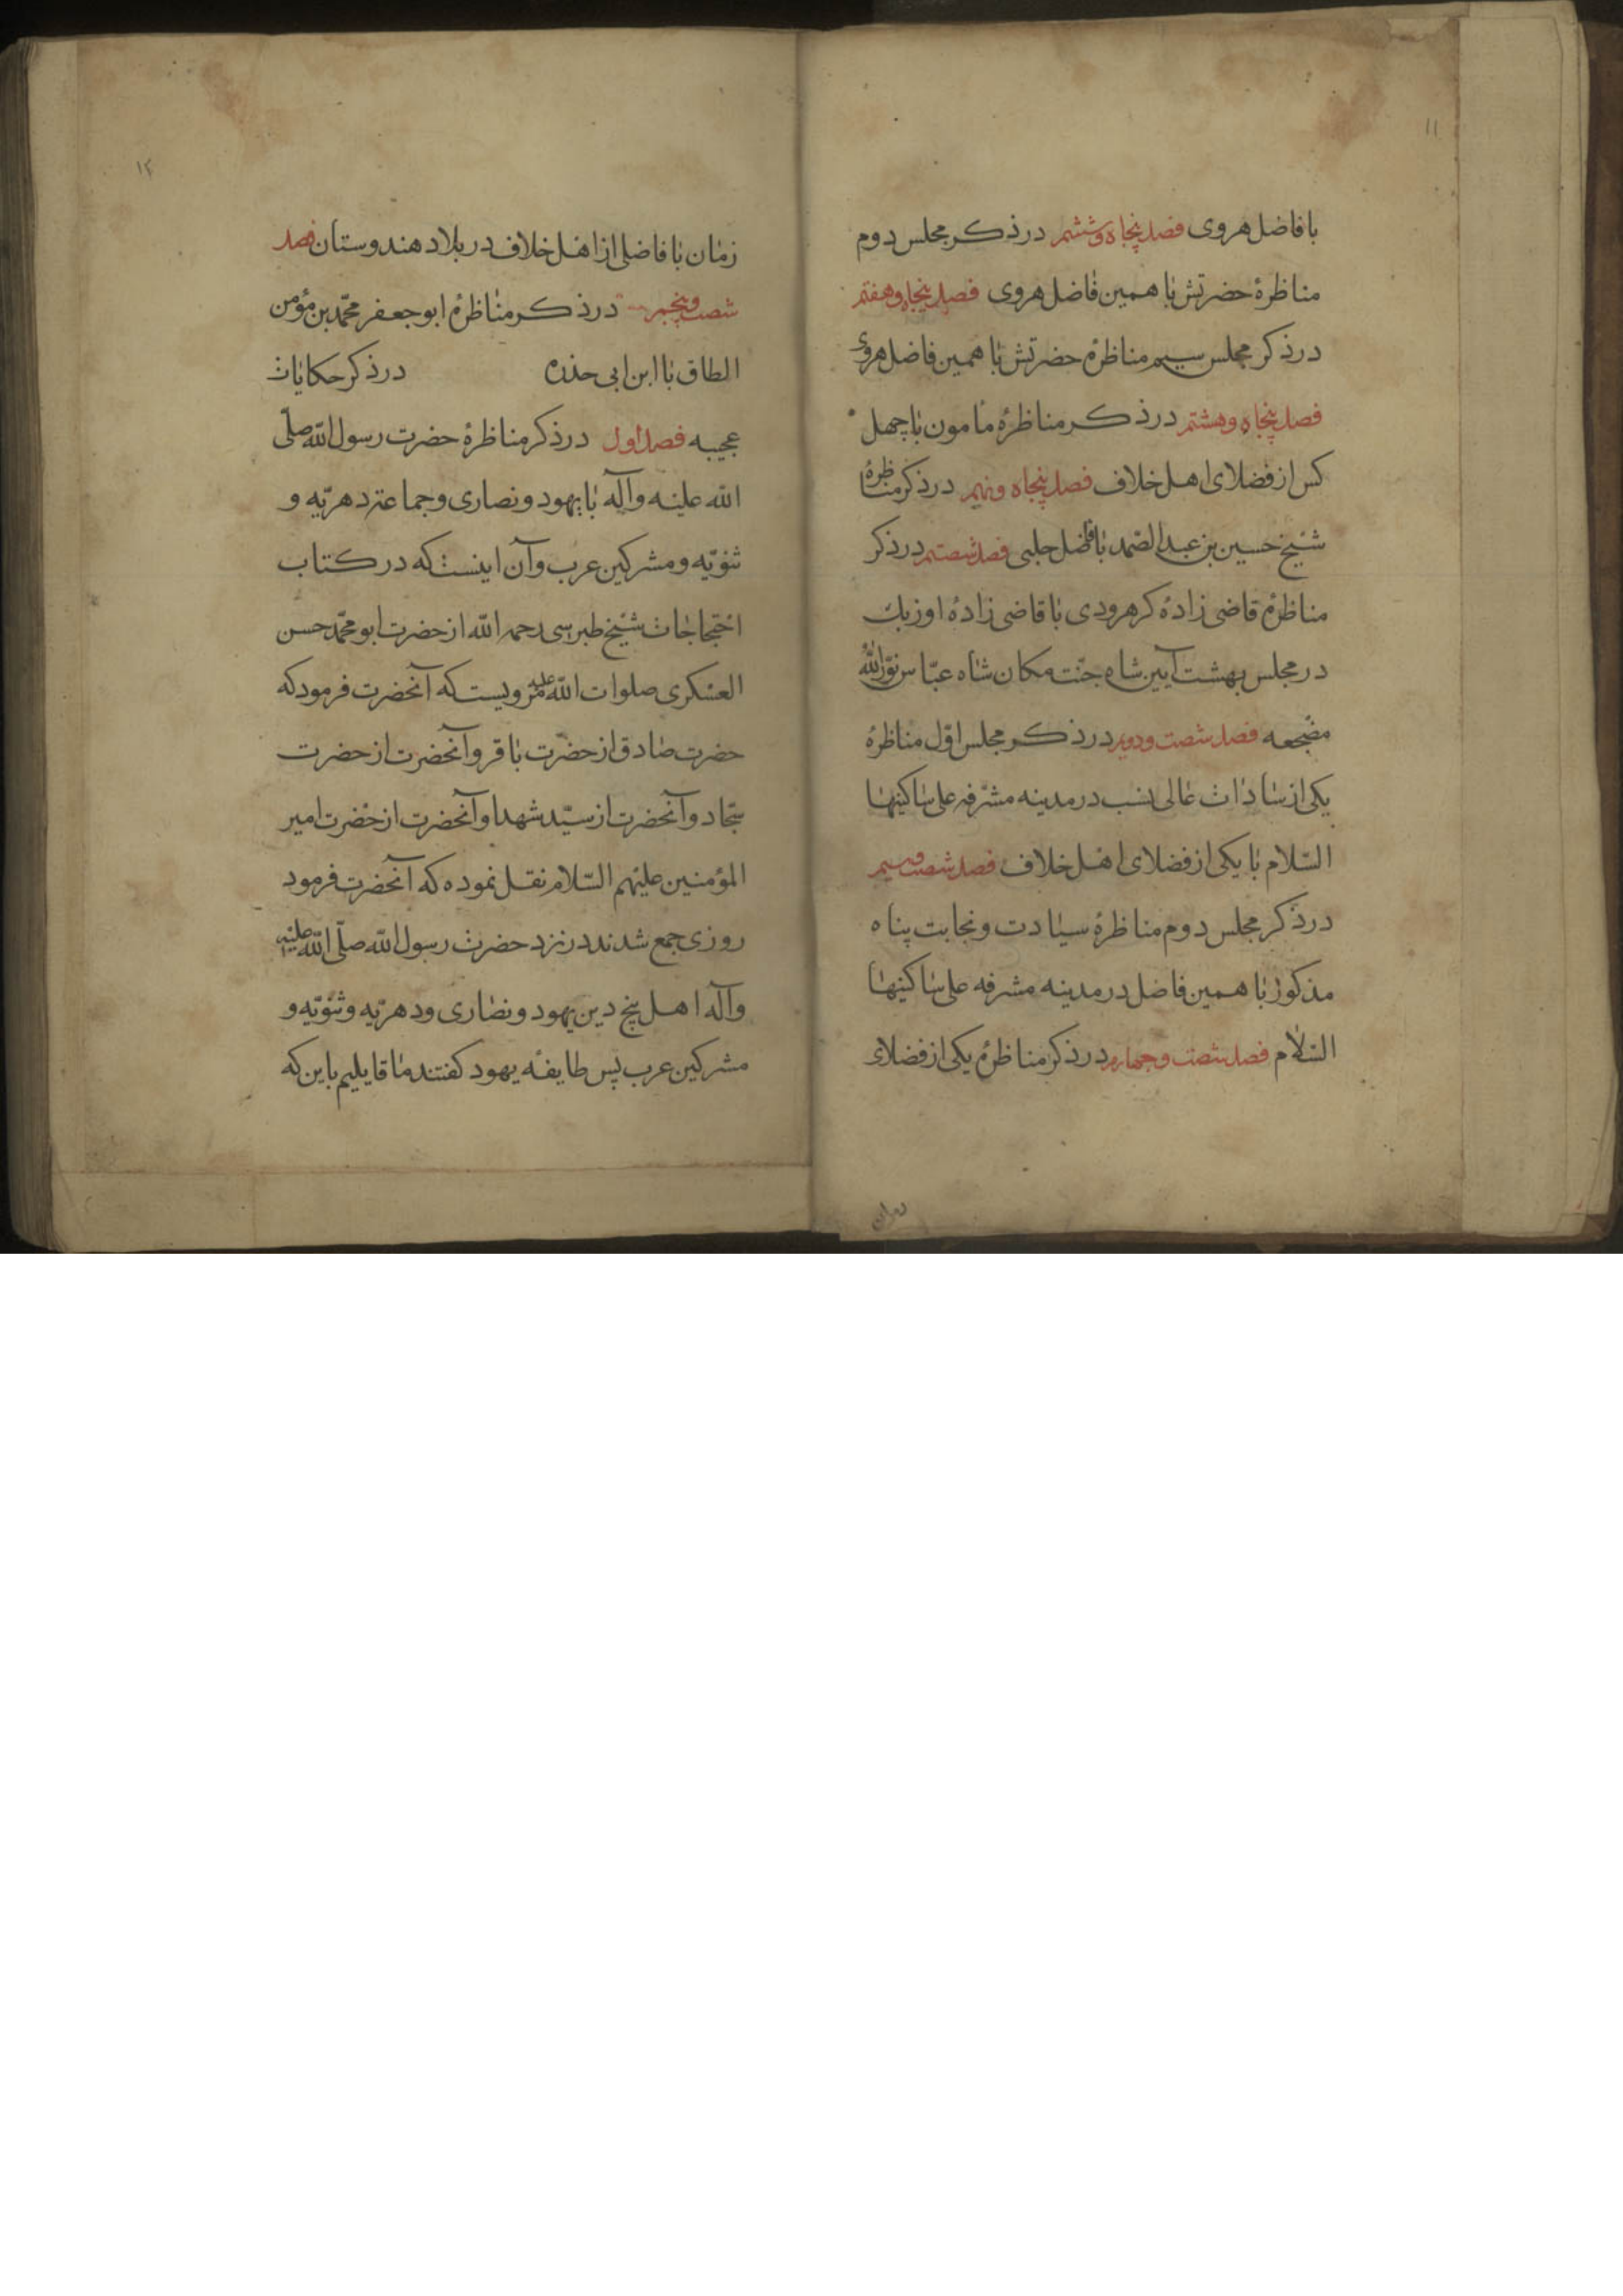 ۱۱
با فاضل هروی فصل پنجاه و ششم در ذکر مجلس دوم
مناظرهٔ حضرتش با همین فاضل هروی فصل پنجاه و هفتم
در ذکر مجلس سیم مناظرهٔ حضرتش با همین فاضل هروی
فصل پنجاه و هشتم در ذکر مناظرهٔ مامون با چهل
کس از فضلای اهل خلاف فصل پنجاه و نهم در ذکر مناظرهٔ
شیخ حسین بن عبد الصّمد با فاضل حلبی فصل شصتم در ذکر
مناظرهٔ قاضی زادهٔ کرهرودی با قاضی زادهٔ اوزبك
در مجلس بهشت آیین شاه جنّت مکان شاه عبّاس نوّر اللّٰه
مضجعه فصل شصت و دویم در ذکر مجلس اوّل مناظرهٔ
یکی از سادات عالی نسب در مدینه مشرّفه علی ساکنیها
السّلام با یکی از فضلای اهل خلاف فصل شصت و سیم
در ذکر مجلس دوم مناظرهٔ سیادت و نجابت پناه
مذکور با همین فاضل در مدینه مشرفه علی ساکنیها
السّلام فصل شصت و چهارم در ذکر مناظرهٔ یکی از فضلای
۱۲
زمان با فاضلی از اهل خلاف در بلاد هندوستان فصل
شصت و پنجم در ذکر مناظرهٔ ابو جعفر محمّد بن مؤمن
الطاق با ابن ابی حذره در ذکر حکایات
عجیبه فصل اول در ذکر مناظرهٔ حضرت رسول اللّه صلّی
اللّه علیه وآله با یهود و نصاری و جماعتِ دهریّه و
ثنویّه و مشرکین عرب و آن اینست که در کتاب
احتجاجات شیخ طبرسی رحمه اللّه از حضرت ابو محمّد حسن
العسکری صلوات اللّه علیه مرویست که آنحضرت فرمود که
حضرت صادق از حضرت باقر و آنحضرت از حضرت
سجّاد و آنحضرت از سیّد شهدا و آنحضرت از حضرت امیر
المؤمنین علیهم السّلام نقل نموده که آنحضرت فرمود
روزی جمع شدند در نزد حضرت رسول اللّه صلّی اللّه علیه
وآله اهل پنج دین یهود و نصاری و دهریّه و ثنویّه و
مشرکین عرب پس طایفهٔ یهود کفتند ما قایلیم باین که